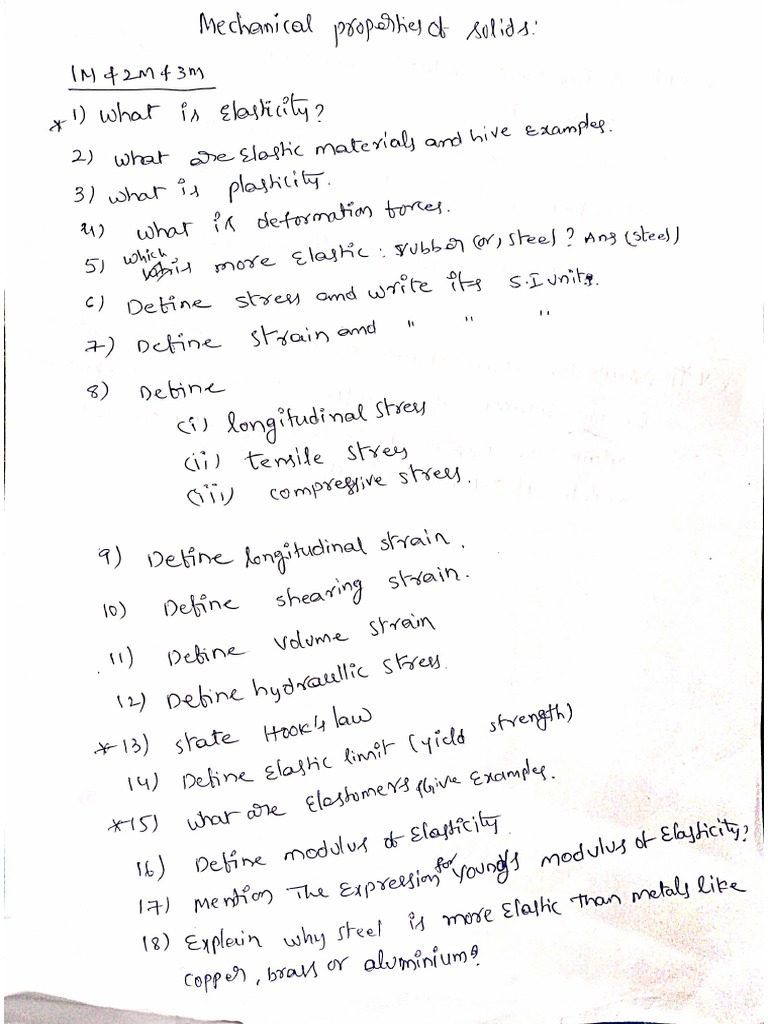 Mechanical properties of solids:
1M & 2M & 3M
* 1) What is Elasticity?
2) What are Elastic materials and Give Examples.
3) What is plasticity.
4) What is deformation forces.
5) which is more Elastic: rubber (or) steel? Ans (steel)
6) Define stress and write its S.I units.
7) Define strain and " " "
8) Define
(i) longitudinal stress
(ii) tensile stress
(iii) compressive stress.
9) Define longitudinal strain.
10) Define shearing strain.
11) Define volume strain
12) Define hydraullic stress.
* 13) state Hook's law
14) Define Elastic limit (yield strength)
* 15) what are Elastomers Give Examples.
16) Define modulus of Elasticity.
17) Mention The Expression for Young's modulus of Elasticity?
18) Explain why steel is more Elastic than metals like
copper, brass or aluminium?